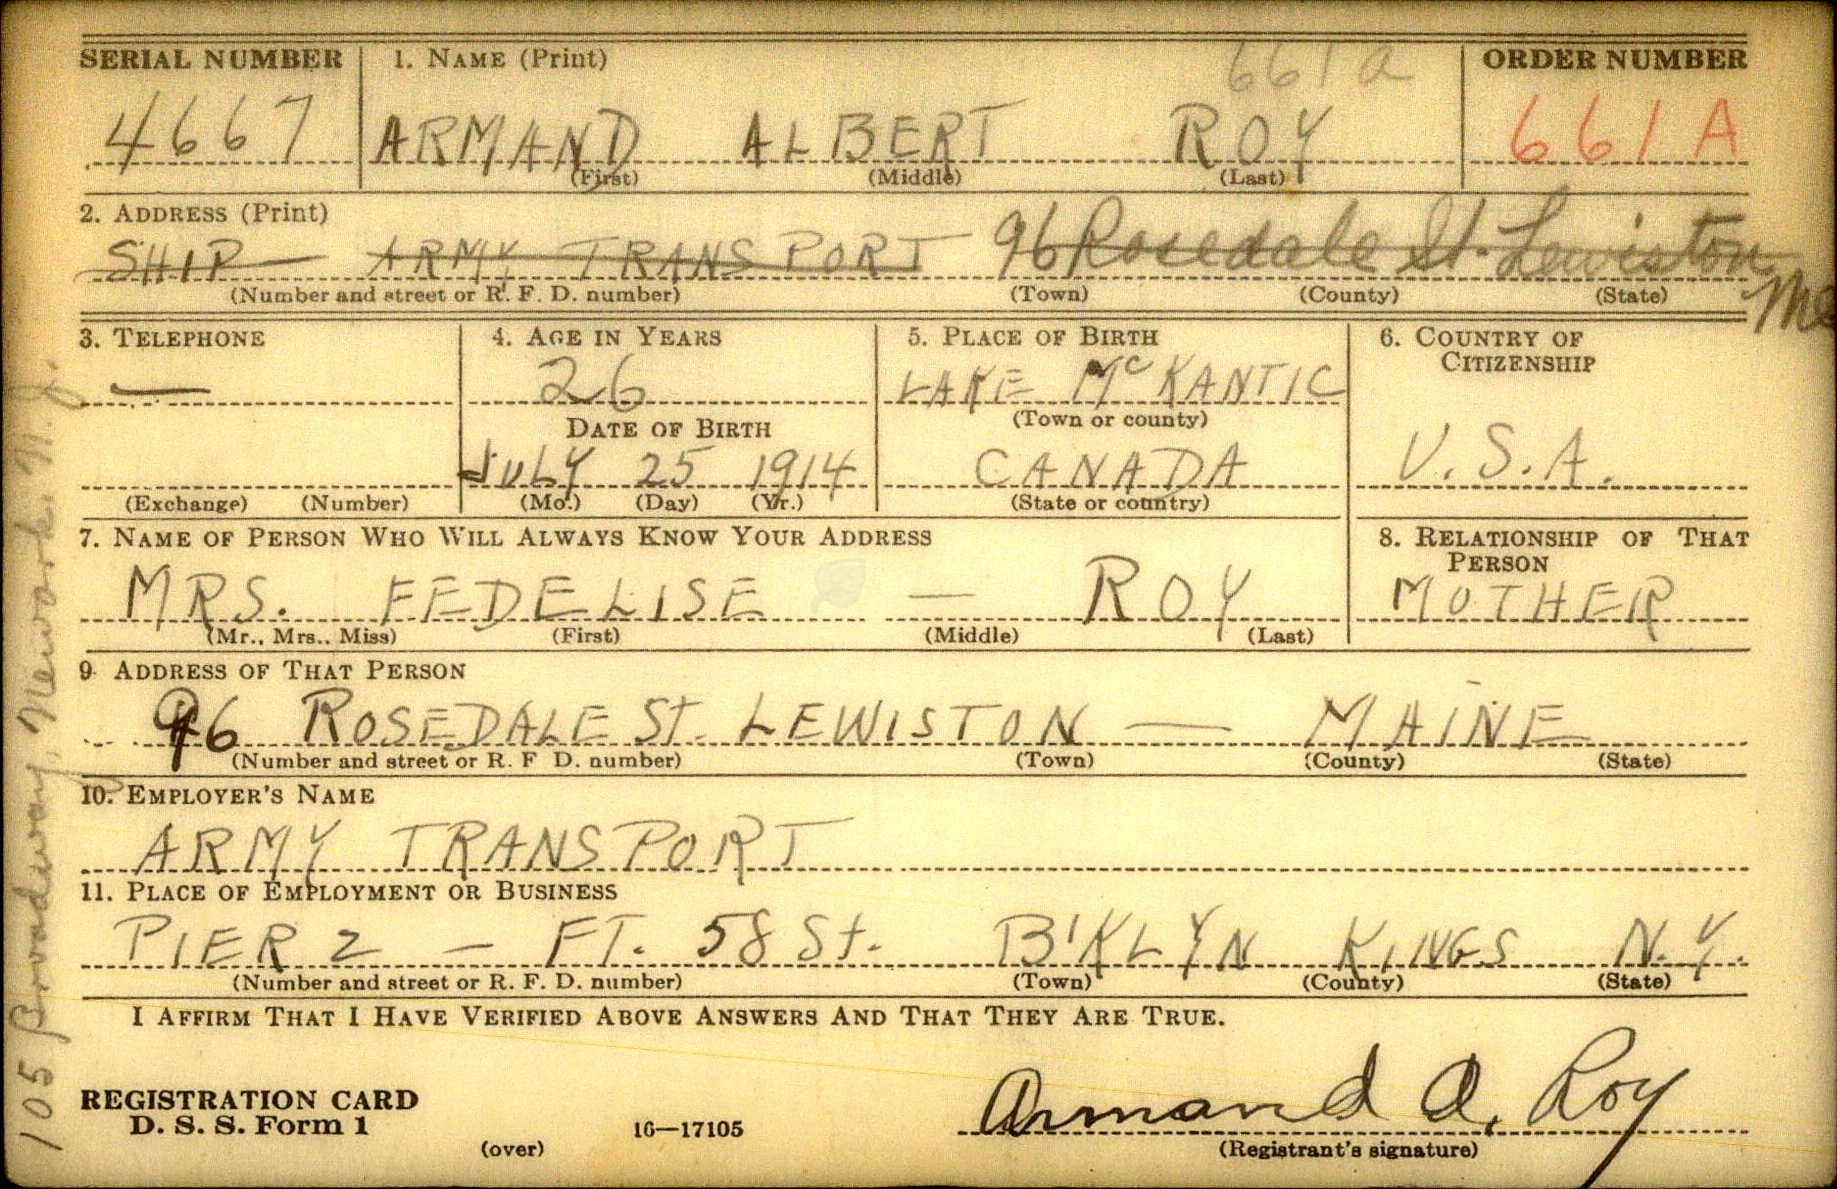 SERIAL NUMBER 1. NAME (Print) 661a ORDER NUMBER
4667 ARMAND ALBERT ROY 661A
(First) (Middle) (Last)
2. ADDRESS (Print)
SHIP — ARMY TRANSPORT 96 Rosedale St. Lewiston Me
(Number and street or R. F. D. number) (Town) (County) (State)
3. TELEPHONE 4. AGE IN YEARS 5. PLACE OF BIRTH 6. COUNTRY OF CITIZENSHIP
— 26 LAKE McKANTIC
DATE OF BIRTH (Town or county)
JULY 25 1914 CANADA U.S.A.
(Exchange) (Number) (Mo.) (Day) (Yr.) (State or country)
7. NAME OF PERSON WHO WILL ALWAYS KNOW YOUR ADDRESS 8. RELATIONSHIP OF THAT PERSON
MRS. FEDELISE — ROY MOTHER
(Mr., Mrs.. Miss) (First) (Middle) (Last)
9. ADDRESS OF THAT PERSON
96 ROSEDALE St. LEWISTON — MAINE
(Number and street or R. F D. number) (Town) (County) (State)
10. EMPLOYER'S NAME
ARMY TRANSPORT
11. PLACE OF EMPLOYMENT OR BUSINESS
PIER 2 — FT. 58 St. B'KLYN KINGS N.Y.
(Number and street or R. F. D. number) (Town) (County) (State)
I AFFIRM THAT I HAVE VERIFIED ABOVE ANSWERS AND THAT THEY ARE TRUE.
Armand A. Roy
REGISTRATION CARD
D. S. S. Form 1 (over) 16—17105 (Registrant's signature)
105 Broadway, Newark N.J.